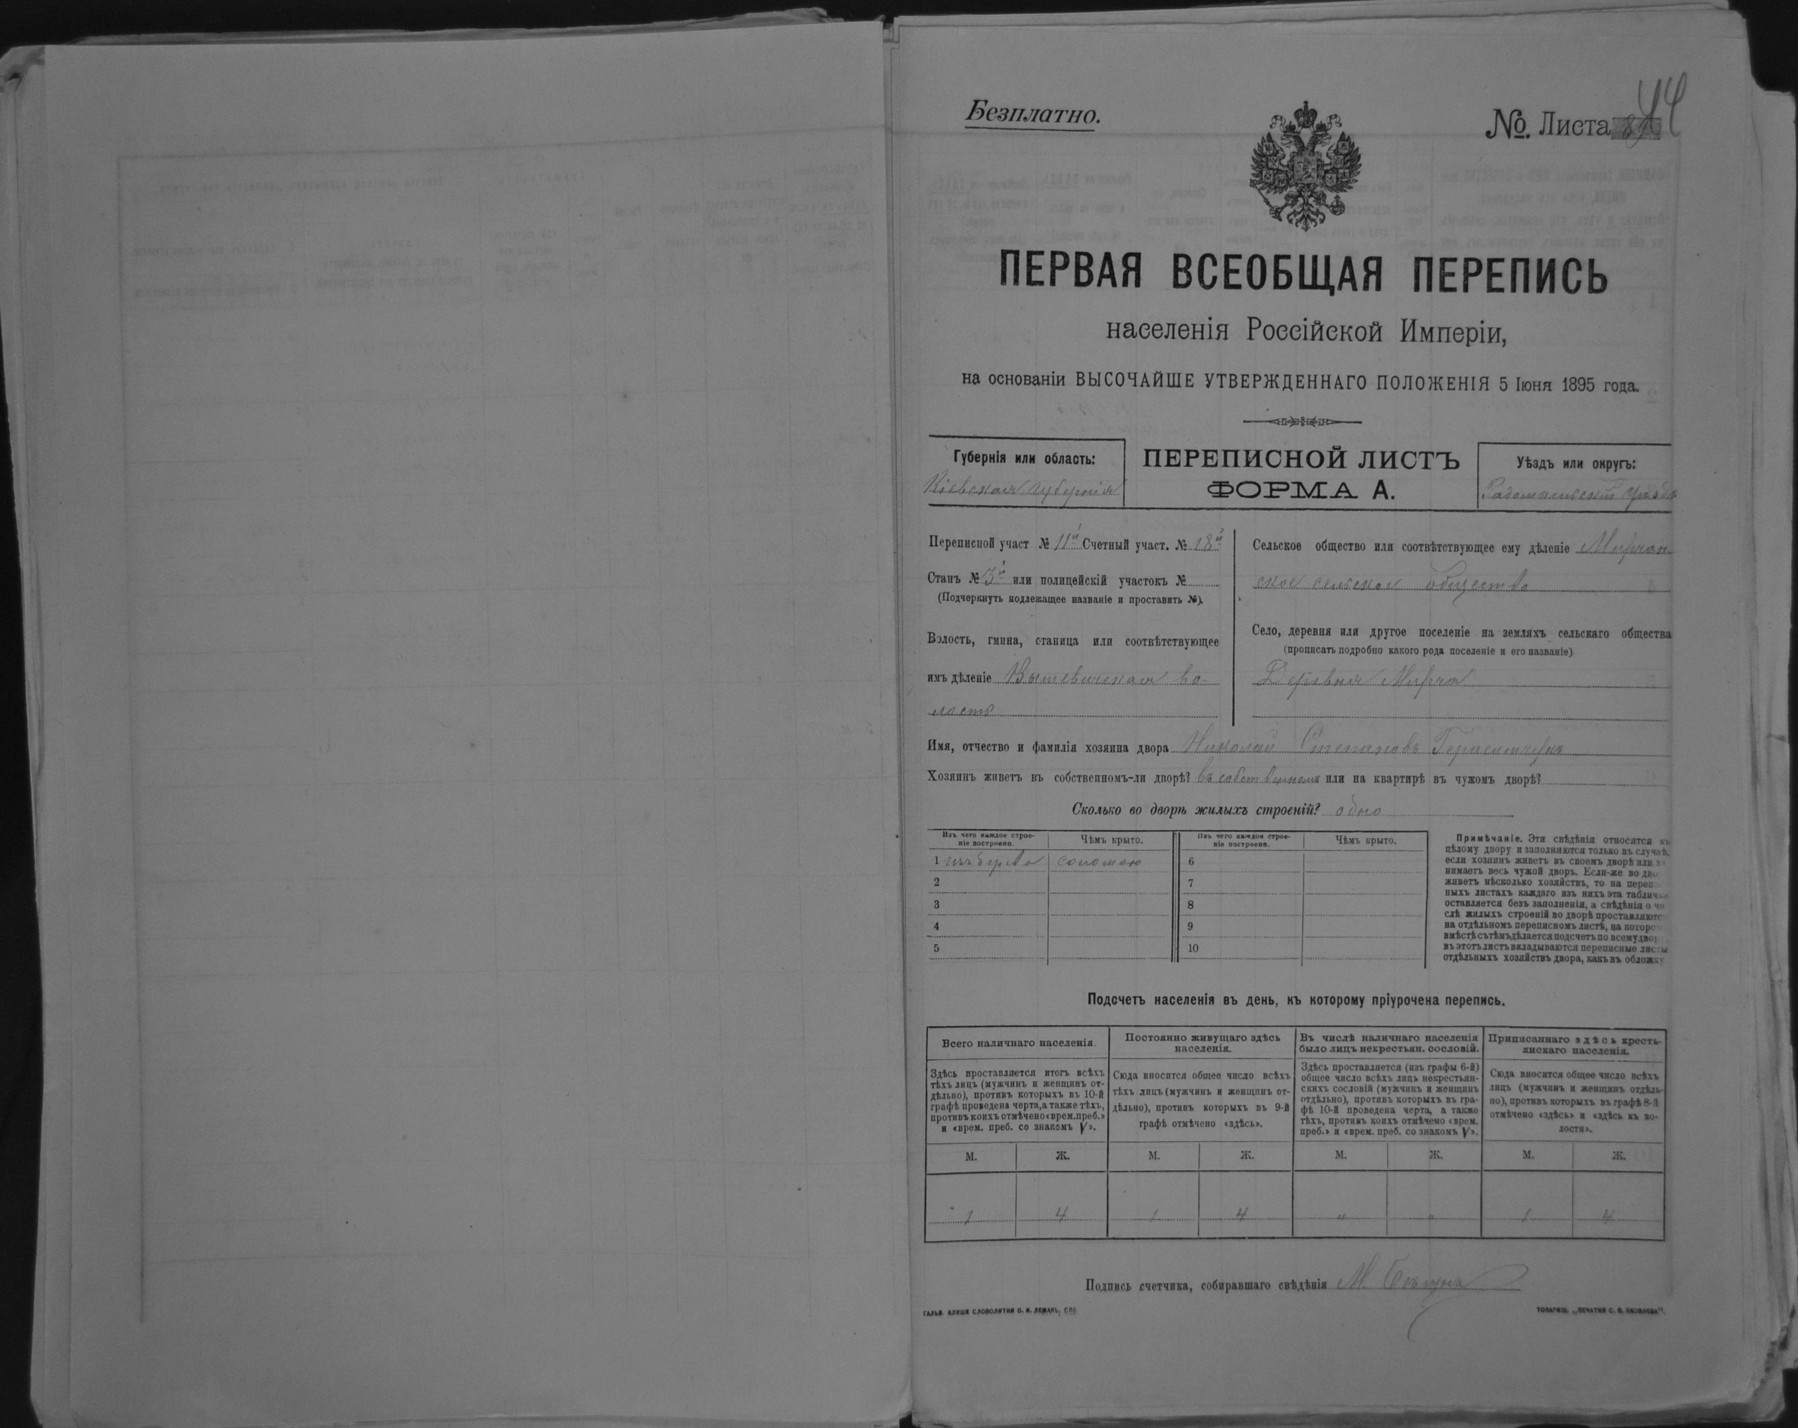 Безплатно.
№. Листа 44
ПЕРВАЯ ВСЕОБЩАЯ ПЕРЕПИСЬ
населенія Россійской Имперіи,
на основаніи ВЫСОЧАЙШЕ УТВЕРЖДЕННАГО ПОЛОЖЕНІЯ 5 Іюня 1895 года.
Губернія или область:
Кіевская губернія
ПЕРЕПИСНОЙ ЛИСТЪ
ФОРМА А.
Уѣздъ или округъ:
Радомысльскій уѣздъ
Переписной участ № 11й Счетный участ. № 18й
Станъ № 3й или полицейскій участокъ №
(Подчеркнуть подлежащее названіе и проставить №).
Волость, гмина, станица или соотвѣтствующее
имъ дѣленіе Вышевичская во-
лость
Сельское общество или соотвѣтствующее ему дѣленіе Мирчан
ское сельское общество
Село, деревня или другое поселеніе на земляхъ сельскаго общества
(прописать подробно какого рода поселеніе и его названіе)
Деревня Мирча
Имя, отчество и фамилія хозяина двора Николай Степановъ
Хозяинъ живетъ въ собственномъ-ли дворѣ? въ собственномъ или на квартирѣ въ чужомъ дворѣ?
Сколько во дворѣ жилыхъ строеній? одно
Изъ чего каждое строе-
ніе построено.
Чѣмъ крыто.
Изъ чего каждое строе-
ніе построено.
Чѣмъ крыто.
1 изъ дерева соломою
2
3
4
5
6
7
8
9
10
Примѣчаніе. Эти свѣдѣнія относятся къ
цѣлому двору и заполняются только въ случаѣ,
если хозяинъ живетъ въ своемъ дворѣ или за
нимаетъ весь чужой дворъ. Если-же во дво
живетъ нѣсколько хозяйствъ, то на перепис
ныхъ листахъ каждаго изъ нихъ эта табличка
оставляется безъ заполненія, а свѣдѣнія о чи
слѣ жилыхъ строеній во дворѣ проставляются
на отдѣльномъ переписномъ листѣ, на которомъ
вмѣстѣ съ тѣмъ дѣлается подсчетъ по всему двор
въ этотъ листъ вкладываются переписные листы
отдѣльныхъ хозяйствъ двора, какъ въ обложку
Подсчетъ населенія въ день, къ которому пріурочена перепись.
Всего наличнаго населенія.
Здѣсь проставляется итогъ всѣхъ
тѣхъ лицъ (мужчинъ и женщинъ от-
дѣльно), противъ которыхъ въ 10-й
графѣ проведена черта, а также тѣхъ,
противъ коихъ отмѣчено «врем. преб.»
и «врем. преб. со знакомъ V».
Постоянно живущаго здѣсь
населенія.
Сюда вносится общее число всѣхъ
тѣхъ лицъ (мужчинъ и женщинъ от-
дѣльно), противъ которыхъ въ 9-й
графѣ отмѣчено «здѣсь».
Въ числѣ наличнаго населенія
было лицъ некрестьян. сословій.
Здѣсь проставляется (изъ графы 6-й)
общее число всѣхъ лицъ некрестьян-
скихъ сословій (мужчинъ и женщинъ
отдѣльно), противъ которыхъ въ гра-
фѣ 10-й проведена черта, а также
тѣхъ, противъ коихъ отмѣчено «врем.
преб.» и «врем. преб. со знакомъ V».
Приписаннаго здѣсь кресть-
янскаго населенія.
Сюда вносится общее число всѣхъ
лицъ (мужчинъ и женщинъ отдѣль-
но), противъ которыхъ въ графѣ 8-й
отмѣчено «здѣсь» и «здѣсь къ во-
лости».
М. Ж. М. Ж. М. Ж. М. Ж.
1 4 1 4 " " 1 4
Подпись счетчика, собиравшаго свѣдѣнія М.
ГАЛЬВ. КЛИШЕ СЛОВОЛИТНИ О. И. ЛЕМАНЪ, СПБ
ТОВАРИЩ. „ПЕЧАТНЯ С. П. ЯКОВЛЕВА".